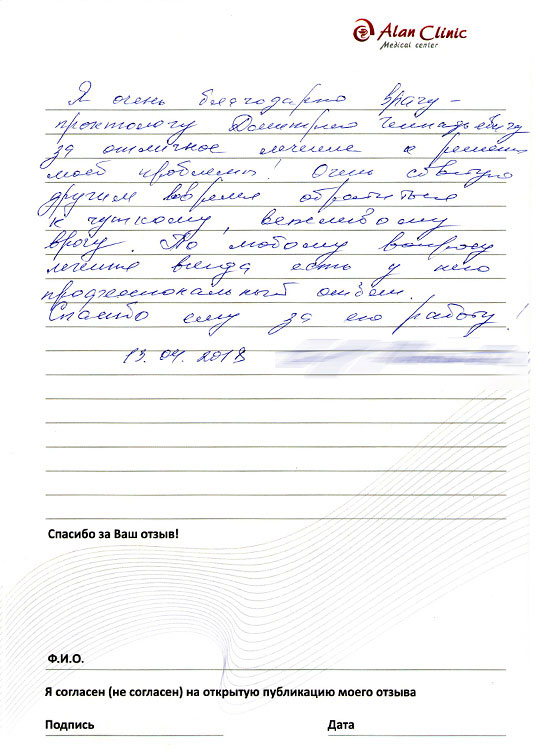 Alan Clinic
Medical center
Я очень благодарна врачу -
проктологу Дмитрию Геннадьевичу
за отличное лечение и решение
моей проблемы! Очень советую
другим вовремя обратиться
к чуткому, вежливому
врачу. По любому вопросу
лечения всегда есть у него
профессиональный ответ.
Спасибо ему за его работу!
13.04.2018
Спасибо за Ваш отзыв!
Ф.И.О.
Я согласен (не согласен) на открытую публикацию моего отзыва
Подпись Дата